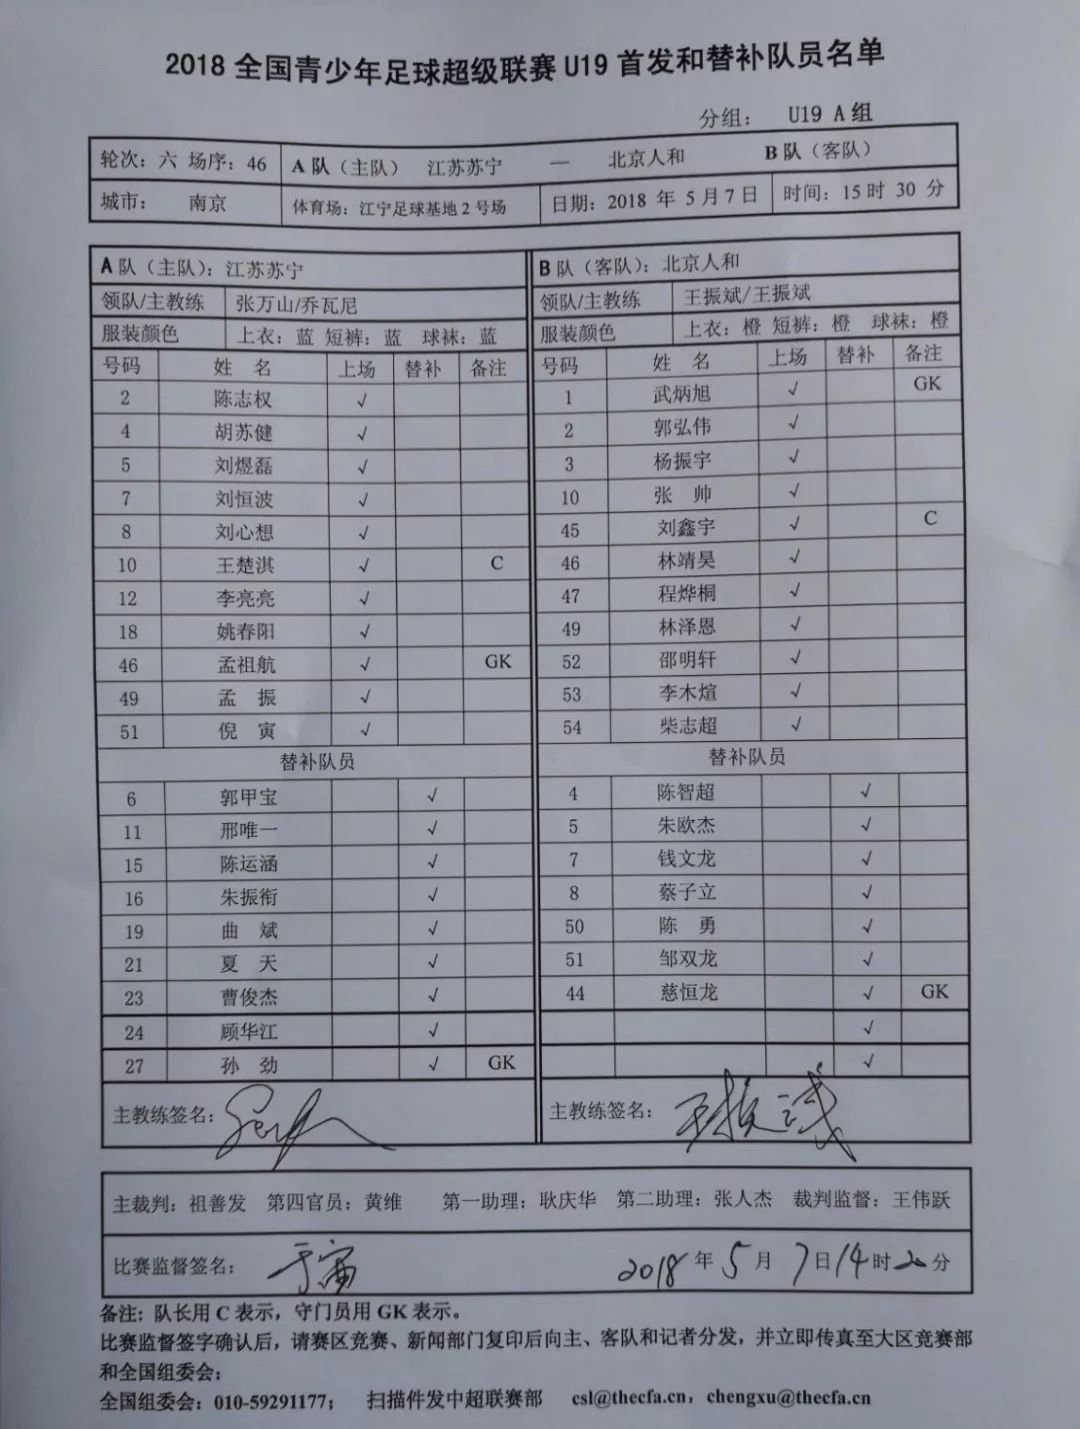 2018 全国青少年足球超级联赛 U19 首发和替补队员名单
分组: U19 A 组
轮次:六 场序:46 A 队(主队) 江苏苏宁 — 北京人和 B 队(客队)
城市: 南京 体育场:江宁足球基地 2 号场 日期:2018 年 5 月 7 日 时间:15 时 30 分
A 队(主队):江苏苏宁
领队/主教练 张万山/乔瓦尼
服装颜色 上衣:蓝 短裤:蓝 球袜:蓝
号码 姓 名 上场 替补 备注
2 陈志权 √
4 胡苏健 √
5 刘煜磊 √
7 刘恒波 √
8 刘心想 √
10 王楚淇 √ C
12 李亮亮 √
18 姚春阳 √
46 孟祖航 √ GK
49 孟 振 √
51 倪 寅 √
替补队员
6 郭甲宝 √
11 邢唯一 √
15 陈运涵 √
16 朱振衔 √
19 曲 斌 √
21 夏 天 √
23 曹俊杰 √
24 顾华江 √
27 孙 劲 √ GK
主教练签名:
B 队(客队):北京人和
领队/主教练 王振斌/王振斌
服装颜色 上衣:橙 短裤:橙 球袜:橙
号码 姓 名 上场 替补 备注
1 武炳旭 √ GK
2 郭弘伟 √
3 杨振宇 √
10 张 帅 √
45 刘鑫宇 √ C
46 林靖昊 √
47 程烨桐 √
49 林泽恩 √
52 邵明轩 √
53 李木煊 √
54 柴志超 √
替补队员
4 陈智超 √
5 朱欧杰 √
7 钱文龙 √
8 蔡子立 √
50 陈 勇 √
51 邹双龙 √
44 慈恒龙 √ GK
√
√
主教练签名:王振斌
主裁判:祖善发 第四官员:黄维 第一助理:耿庆华 第二助理:张人杰 裁判监督:王伟跃
比赛监督签名: 2018 年 5 月 7 日 14 时 20 分
备注:队长用 C 表示,守门员用 GK 表示。
比赛监督签字确认后,请赛区竞赛、新闻部门复印后向主、客队和记者分发,并立即传真至大区竞赛部
和全国组委会:
全国组委会:010-59291177; 扫描件发中超联赛部 csl@thecfa.cn,chengxu@thecfa.cn